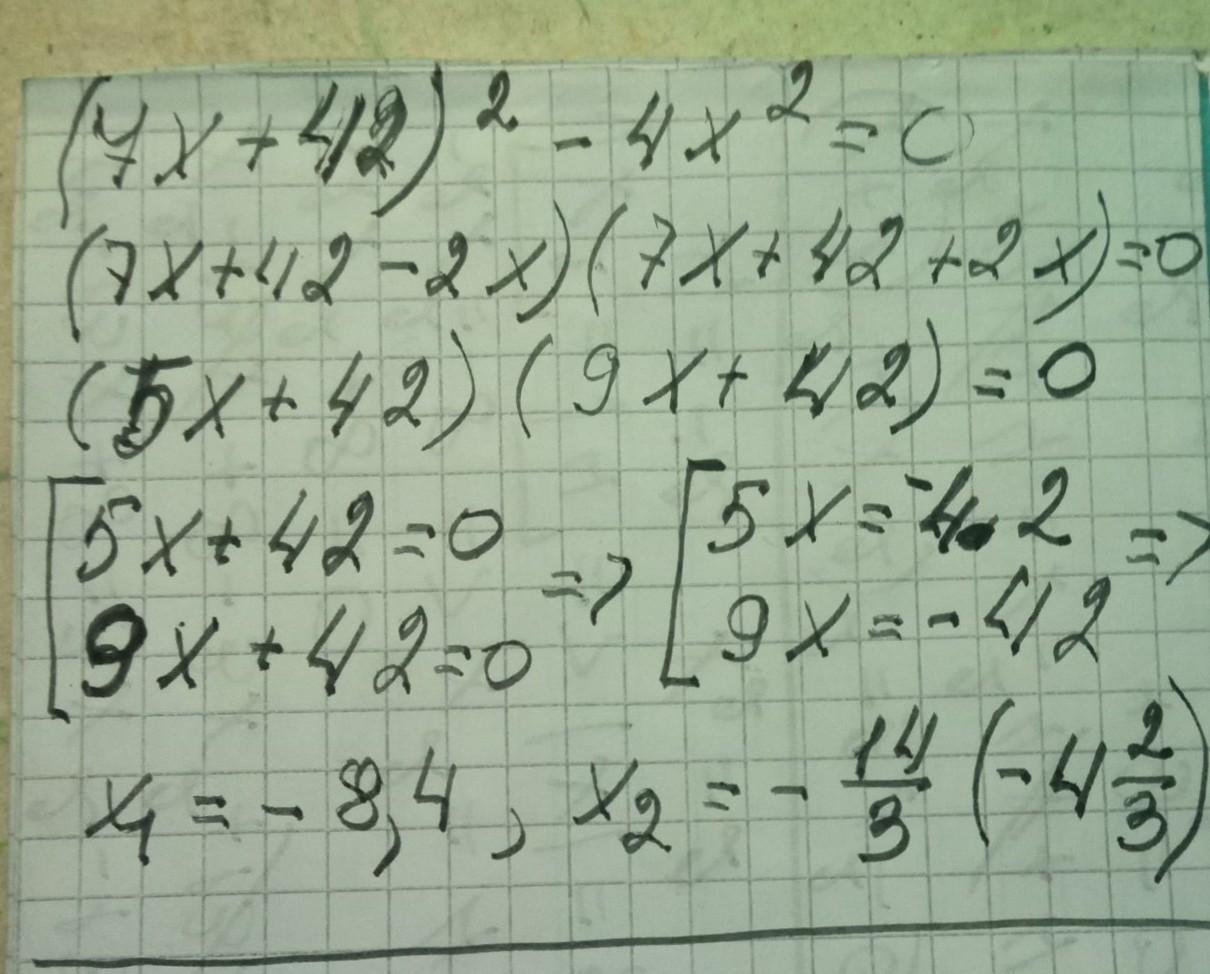 (7x+42)² - 4x² = 0
(7x+42-2x)(7x+42+2x)=0
(5x+42)(9x+42)=0
[5x+42=0 => [5x=-42 =>
[9x+42=0 [9x=-42
x₁ = -8,4, x₂ = -14/3 (-4 2/3)